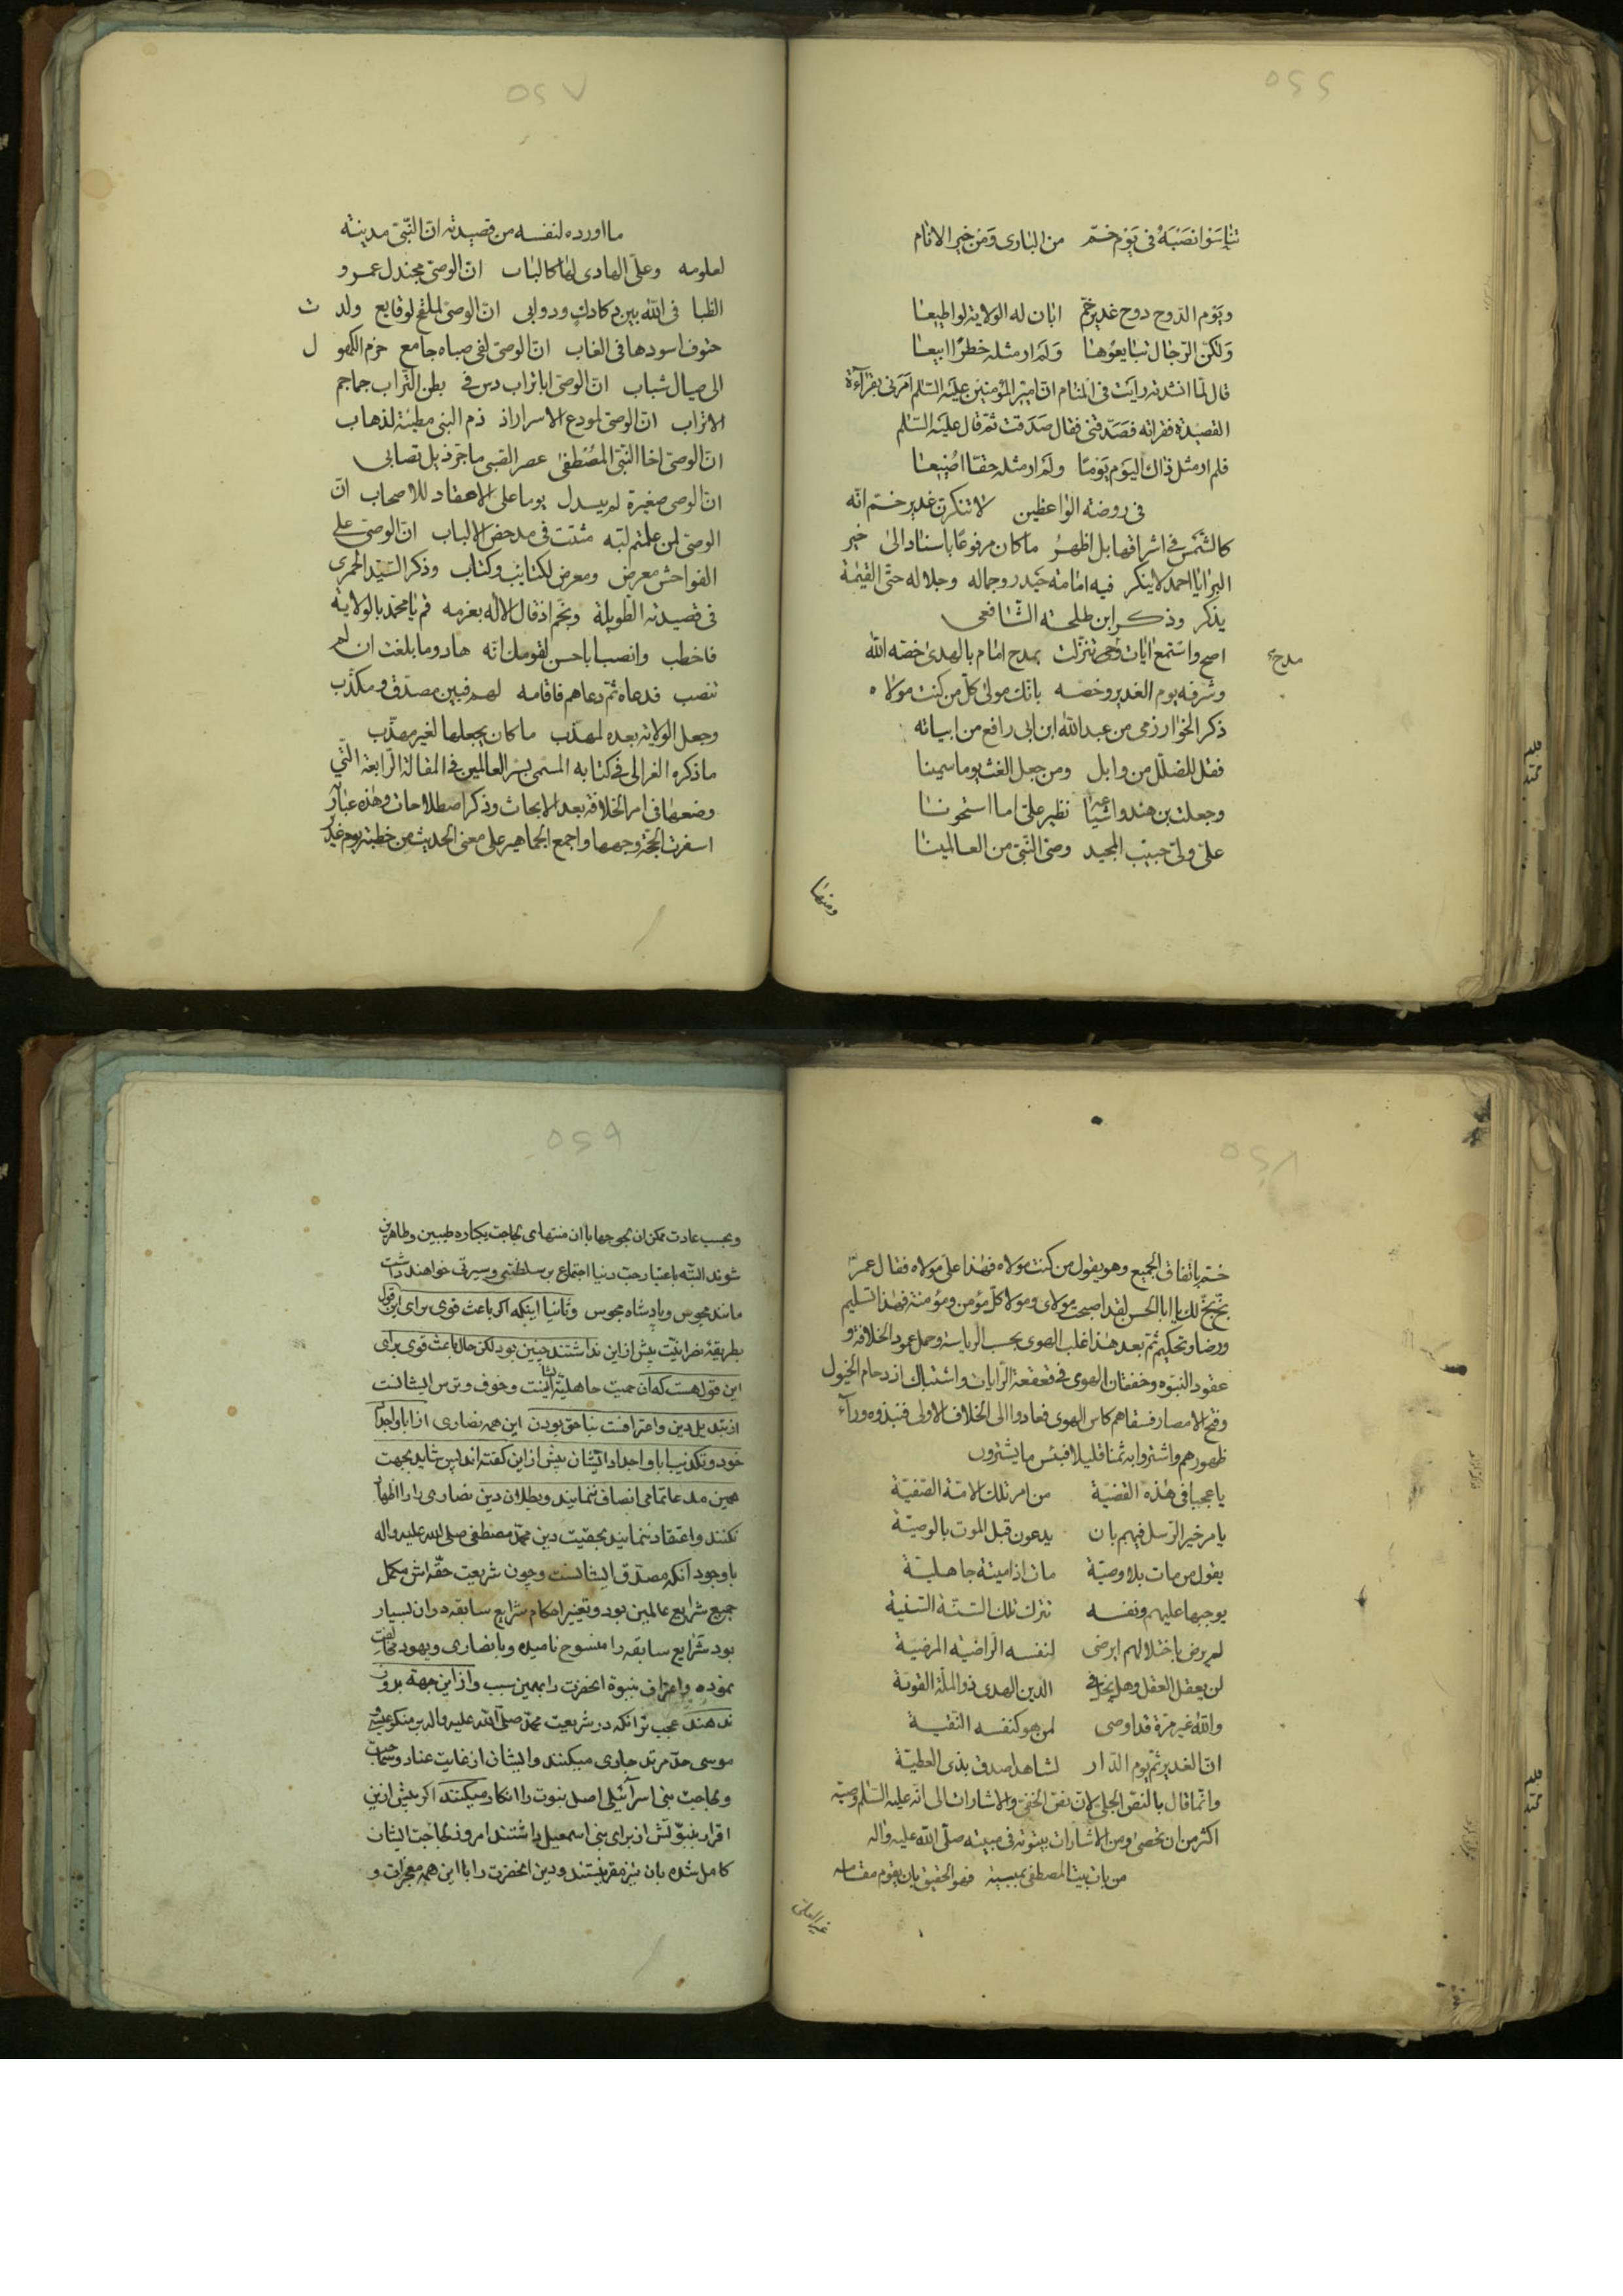 ۵۶۶
تناسوا نصبه فی یوم خمّ من الباری ومن خیر الانام
ویوم الدوح دوح غدیر خمّ ابان له الولایة لو اطیعا
ولکن الرجال تبایعوها ولم ار مثله خطرا ابیعا
قال لما انشدته رایت فی المنام ان امیر المؤمنین علیه السلم امرنی بقرآءة
القصیدة فقراته فصدقنی فقال صدقت ثم قال علیه السّلم
فلم ار مثل ذاك الیوم یوما ولم ار مثله حقّا اضیعا
فی روضة الواعظین لا تنکرن غدیر خمّ انّه
کالشمس فی اشراقها بل اظهر ما کان مرفوعا باسناد الی خیر
البرایا احمد لا ینکر فیه امامة حیدر وجماله وجلاله حتی القیمة
یذکر وذکر ابن طلحة الشافعی
اصح واستمع ایات وحی تنزلت بمدح امام بالهدی خصّه الله
مدح
وشرفه یوم الغدیر وخصه بانك مولی کلّ من کنت مولاه
ذکر الخوارزمی من عبد الله ابن ابی رافع من ابیاته
فقل للمضلّل من وابل ومن جعل الغث یوما سمینا
وجعلت بن هند واشیاعه نظیر علیّ اما استحونا
علیّ ولیّ حبیب المجید وصیّ النبیّ من العالمینا
ومنها
۵۶۷
ما اورده لنفسه من قصیدته انّ النّبیّ مدینة
لعلومه وعلیّ الهادی لها کالباب انّ الوصیّ مجندل عمرو
الظبا فی الله بین دکادك وروابی انّ الوصیّ لملقح لوقایع ولدت
حتوف اسودها فی الغاب انّ الوصیّ لفی صباه جامع حزم الکهول
الی صیال شباب انّ الوصیّ اباتراب دس فی بطن التراب جماجم
الاتراب انّ الوصیّ لمودع الاسرار اذ ذم البنی مطیة لذهاب
انّ الوصیّ اخا النّبیّ المصطفی عصر الصبی ما جرّ ذیل تصابی
انّ الوصی صغیرة لم یسدل یوما علی الاحقاد للاصحاب انّ
الوصیّ لمن علمتم لبّه مثبت فی مدحض الالباب انّ الوصیّ علی
الفواحش معرض ومعرض لکتایب وکتاب وذکر السّید الحمیری
فی قصیدته الطویلة وبخم اذ قال الاله بعزمه قم یا محمد بالولایة
فاخطب وانصب اباحسن لقومك انّه هاد وما بلغت ان لم
تنصب فدعاه ثمّ دعاهم فاقامه لهم فبین مصدّق ومکذّب
وجعل الولایة بعده لمهذّب ما کان یجعلها لغیر مهذّب
ما ذکره الغزالی فی کتابه المسمی بسر العالمین فی المقالة الرّابعة الّتی
وضعها فی امر الخلافة بعد الابحاث وذکر اصطلاحات وهذه عبارة
اسفرت الحجّة وجهها واجمع الجماهیر علی معنی الحدیث من خطبة یوم غدیر
۵۶۸
خمّ باتفاق الجمیع وهو یقول من کنت مولاه فهذا علیّ مولاه فقال عمر
بخّ بخّ لك یا ابا الحسن لقد اصبحت مولای ومولا کلّ مؤمن ومؤمنة فهذا تسلیم
ورضا وتحکیم ثمّ بعد هذا غلب الهوی بحب الریاسة وحمل عمود الخلافة و
عقود النبوّه وخفقان الهوی فی قعقعة الرّایات واشتباك ازدحام الخیول
وفتح الامصار فسقاهم کاس الهوی فعادوا الی الخلاف الاولی فنبذوه ورآء
ظهورهم واشتروا به ثمنا قلیلا فبئس ما یشترون
یا عجبا فی هذه القضیة من امر تلك الامّة الصّفیّة
یامر خیر الرّسل فیهم بان یدعون قبل الموت بالوصیّة
یقول من مات بلا وصیّة مات اذا میتة جاهلیّة
یوجبها علیهم ونفسه تترك تلك السّنّة السنیة
لم یرض باختلالهم ایرضی لنفسه الراضیة المرضیّة
لن یعقل العقل وهل یخل فی الدین الهدی ذو الملّة القویّة
والله غیر مرّة قد اوصی لمن هو کنفسه النّقیّة
انّ الغدیر ثمّ یوم الدّار لشاهد اصدق بذی العطیّة
وانّما قال بالنصّ الجلی لانّ نصّ الخفیّ والاشارات الی انّه علیه السّلم وصیّه
اکثر من ان تحصی ومن الاشارات بیتوته فی مبیته صلّی الله علیه واله
من بات بیت المصطفی بمبیته فهو الحقیق بان یقوم مقامه
۵۶۹
وبحسب عادت ممکن ان نحوی جها با ان منتهای لجاجت یکباره طیبین وطاهرین
شوند البتّه باعتبار حبّ دنیا اجتماع بر سلطنتی وسیرتی خواهند داشت
مانند مجوس وپادشاه مجوس وثانیا اینکه اگر باعث قوی برای این قول
بطریقهٔ نصرانیّت پیش از این نداشتند چنین بود لکن حال باعث قوی برای
این قول هست که آن حمیت جاهلیّت اینست وخوف وترس ایشانست
از تبدیل دین واعترافست بناحق بودن این همه نصاری از ابا واجداد
خود وتکذیب ابا واجداد ایشان پیش از این گفته اند پس شاید بجهت
همین مدعا تمامی انصاف ننمایند وبطلان دین نصاری را اظهار
نکنند واعتقاد ننمایند بحقیّت دین محمّد مصطفی صلی الله علیه واله
با وجود آنکه مصدّق ایشانست وچون شریعت حقّه اش مکمل
جمیع شرایع عالمین بود وتغییر احکام شرایع سابقه در ان بسیار
بود شرایع سابقه را منسوخ نامیده وبا نصاری ویهود مخالفت
نموده واعتراف بنبوّة انحضرت را بهمین سبب واز این جهة بروز
ندهند عجب تر انکه در شریعت محمّد صلّی الله علیه واله بر منکر عیسی
موسی حدّ مرتد جاری میکنند وایشان از غایت عناد
ولجاجت بنی اسرآئیلی اصل نبوت را انکار میکنند اگر پیش ازین
اقرار بنبوّتش از برای بنی اسمعیل داشتند امروز لجاجت ایشان
کامل شده بان نیز مقر نیستند ودین انحضرت را با این همه معجزات و